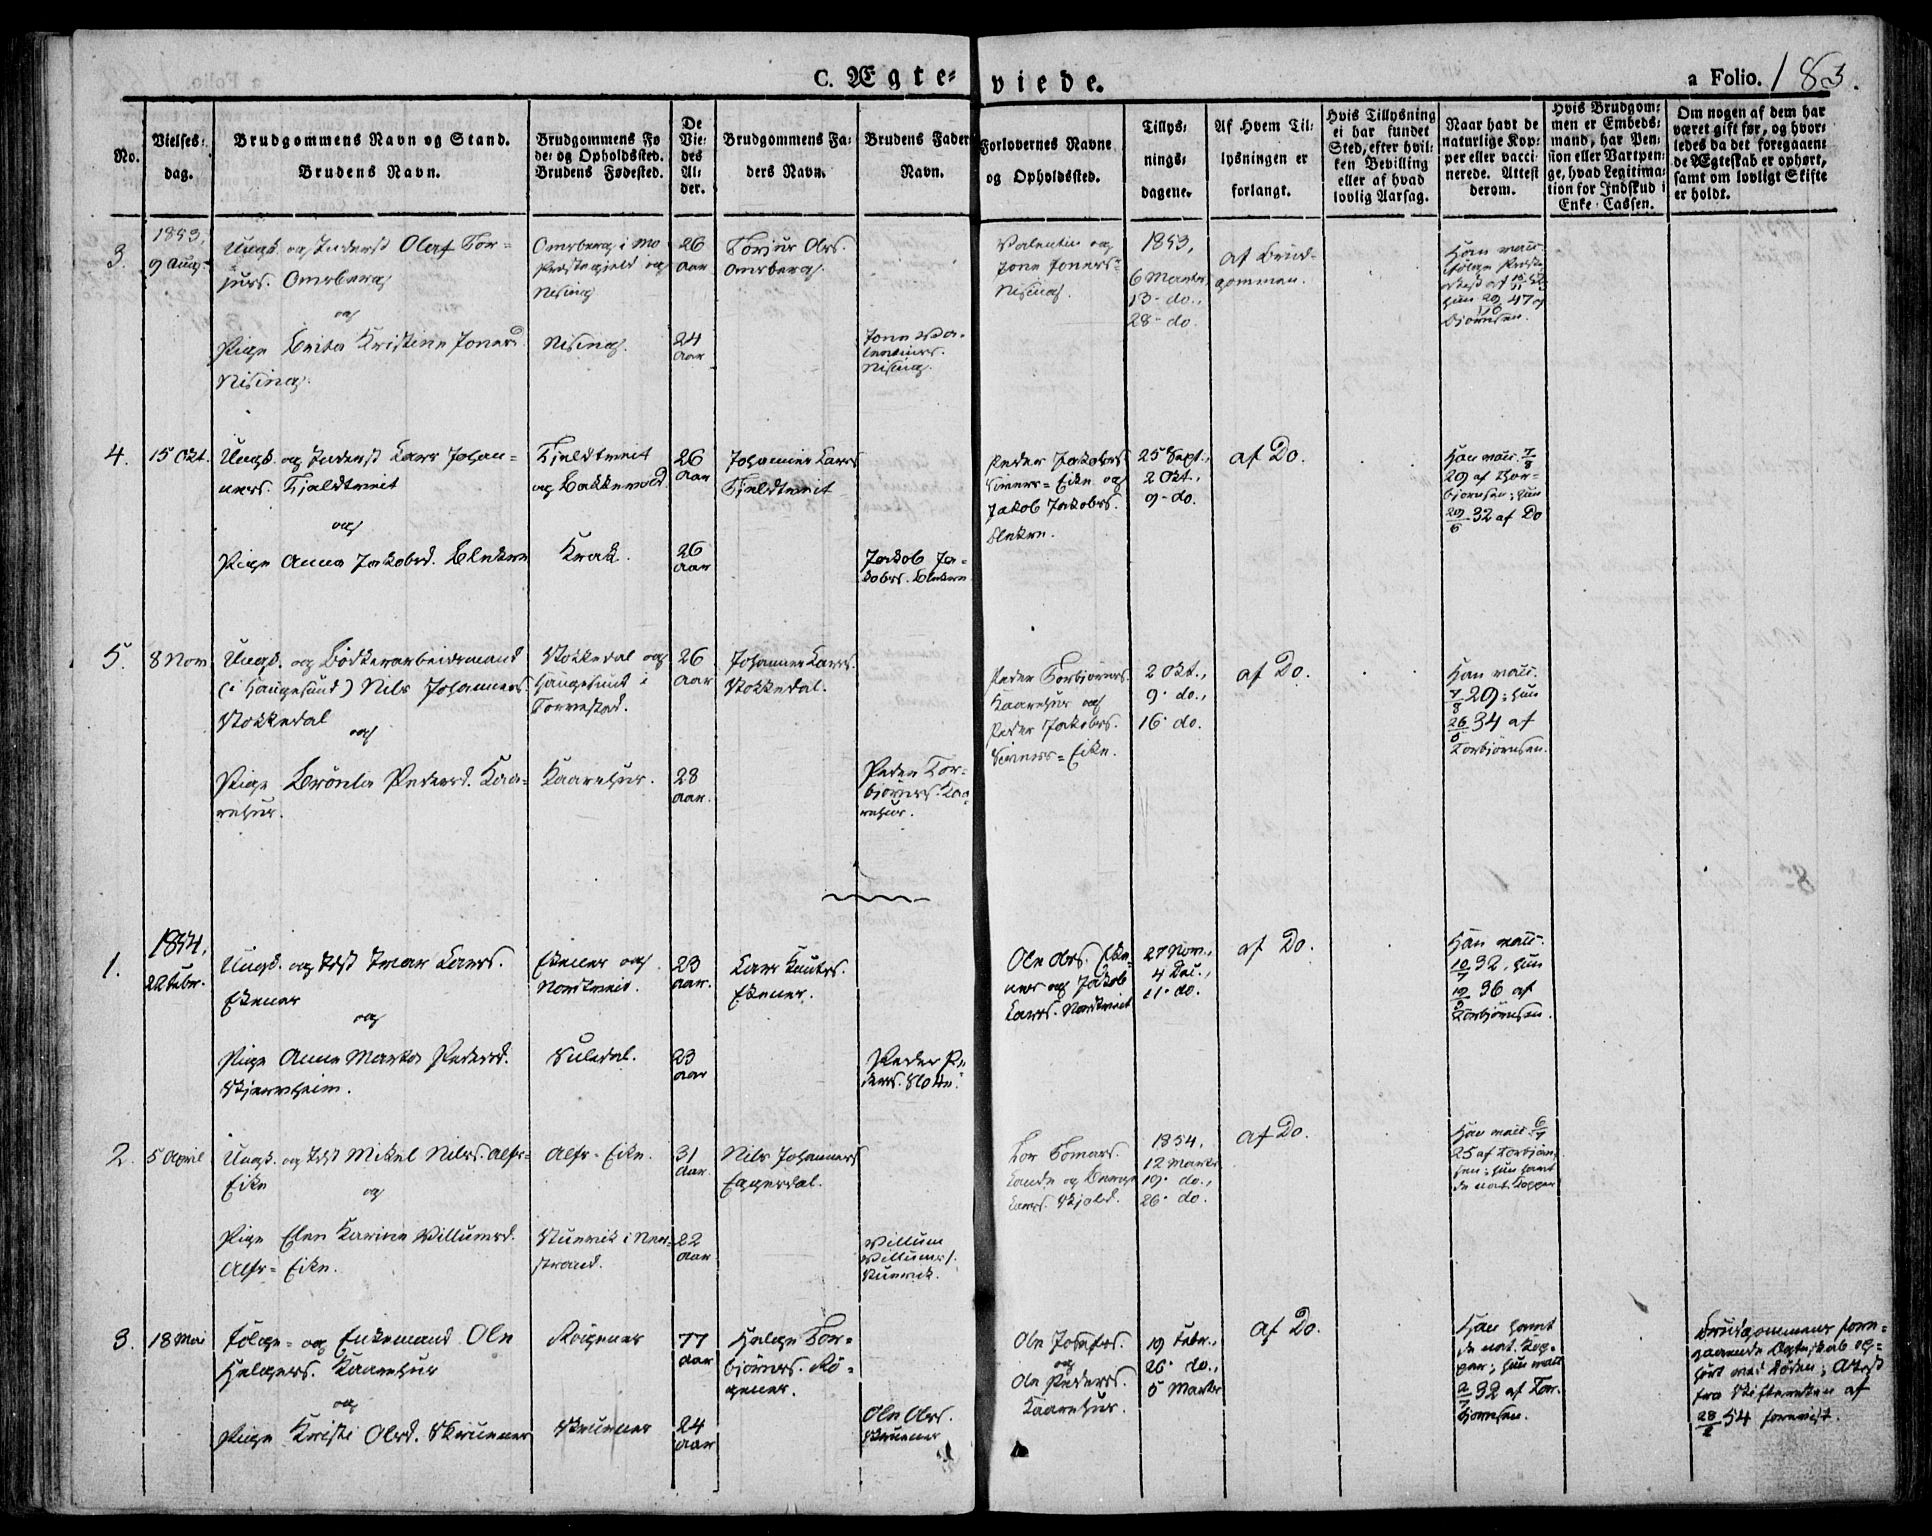 C. Ægteviede.
a Folio. 183.
No.
Vielses:
dag.
Brudgommens Navn og Stand.
Brudens Navn.
Brudgommens Fø
de: og Opholdssted.
Brudens Fødested.
De
Vie:
des
Al:
der.
Brudgommens Fa:
ders Navn.
Brudens Faders
Navn.
Forlovernes Navne
og Opholdssted.
Tillys:
nings:
dagene.
Af Hvem Til:
lysningen er
forlangt.
Hvis Tillysning
ei har fundet
Sted, efter hvil:
ken Bevilling
eller af hvad
lovlig Aarsag.
Naar havt de
naturlige Kop:
per eller vacci:
nerede. Attest
derom.
Hvis Brudgom:
men er Embeds:
mand, har Pen:
sion eller Vartpen:
ge, hvad Legitima:
tion for Indskud i
Enke-Cassen.
Om nogen af dem har
været gift før, og hvor:
ledes da det foregaaen:
de Ægteskab er ophørt,
samt om lovligt Skifte
er holdt.
3.
1853,
9 Aug.
Ungk. og Inderst Olaf Tor-
jurs. Omrberg
og
Pige Berta Kristine Jonesd.
Nising.
Omrberg i
Præstegjeld og
Nising
Nising.
26
Aar
24
Aar
Torjur Ols.
Omrberg.
Jone Va-
lentins.
Nising.
Valentin og
Jone Joners-
Nising.
1853,
6 Marts,
13 - do.,
28 - do.
af Brud-
gommen.
Han vacc.
ifølge Præste-
hun 29 47 af
Bjørnsen.
4.
15 Okt.
Ungk. og Inderst Lars Johan-
ners. Fjeldtveit
og
Pige Anna Jakobsd. Bleken
Fjeldtveit
og Bakkevold
Krak.
26
Aar
26
Aar
Johannes Larss
Fjeldtveit
Jakob Ja-
kobs. Bleken
Peder Jakobs
Simers-Eike og
Jakob Jakobs.
Bleken.
25 Sept.,
2 Okt.,
9 - do.
af Do.
Han vacc. 7/8
29 af Thor-
bjørnsen; hun
29/6 32 af Do
5.
8 Nov
Ungk. og Bødkerarbeidsmand
(i Haugesund) Nils Johanners.
Stokkedal
og
Pige Brønla Pedersd. Kaa-
rehus.
Stokkedal og
Haugesund i
Torvestad.
Kaarehus.
26
Aar
28
Aar.
Johannes Larss.
Stokkedal.
Peder Tor-
bjørns. Kaa-
rehus.
Peder Torbjørns.
Kaarehus og
Peder Jakobs.
Simers-Eike.
2 Okt.,
9 - do.,
16 - do.
af Do.
Han vacc.
7/8 29; hun
26/6 34 af
Torbjørnsen.
1.
1854,
22 Febr.
Ungk. og Idst Ivar Larss.
Ekenes
og
Pige Anne Marta Pedersd.
Skjerrheim.
Ekenes og
Nordtveit.
Suledal.
23
Aar.
23
Aar
Lars Knuts.
Ekenes.
Peder Pe-
ders.
Ole Ols. Eke-
nes og Jakob
Larss. Nordtveit
27 Nov.,
4 Dec.,
11 - do.
af Do.
Han vacc.
10/7 32, hun
19/9 36 af
Torbjørnsen.
2.
5 April
Ungk. og Idst Mikel Nils. Alfs-
Eike
og
Pige Elen Karine Villumsd.
Alfs-Eike.
Alfs-Eike.
i Ner-
strand.
31
Aar.
22
Aar
Nils Johannes
Eggerdal.
Villum
Villums.
Tor Tomas.
Lande og
Larss. Skjold.
1854.
12 Marts
19 - do.,
26 - do.
af Do.
Han vacc. 6/7
25 af Torbjørn-
sen; hun havt
de nat. Kopper
3.
18 Mai
Følge- og Enkemand Ole
Helgers. Kaarehus
og
Pige Kristi Olsd. Skruenes
Røgenes
Skruenes
77
Aar
24
Aar
Helge Tor-
bjørns. Rø-
genes.
Ole Ols.
Skruenes
Ole Josefs.
og
Ole Peders.
Kaarehus.
19 Febr.,
26 - do.,
5 Marts
af Do.
Han havt
de nat. Kop-
per; hun vacc
2/7 32 af Tor-
bjørnsen.
Brudgommens fore-
gaaende Ægteskab op-
hørt ved Døden; Attest
fra Skifteretten af
28/2 54 forevist.